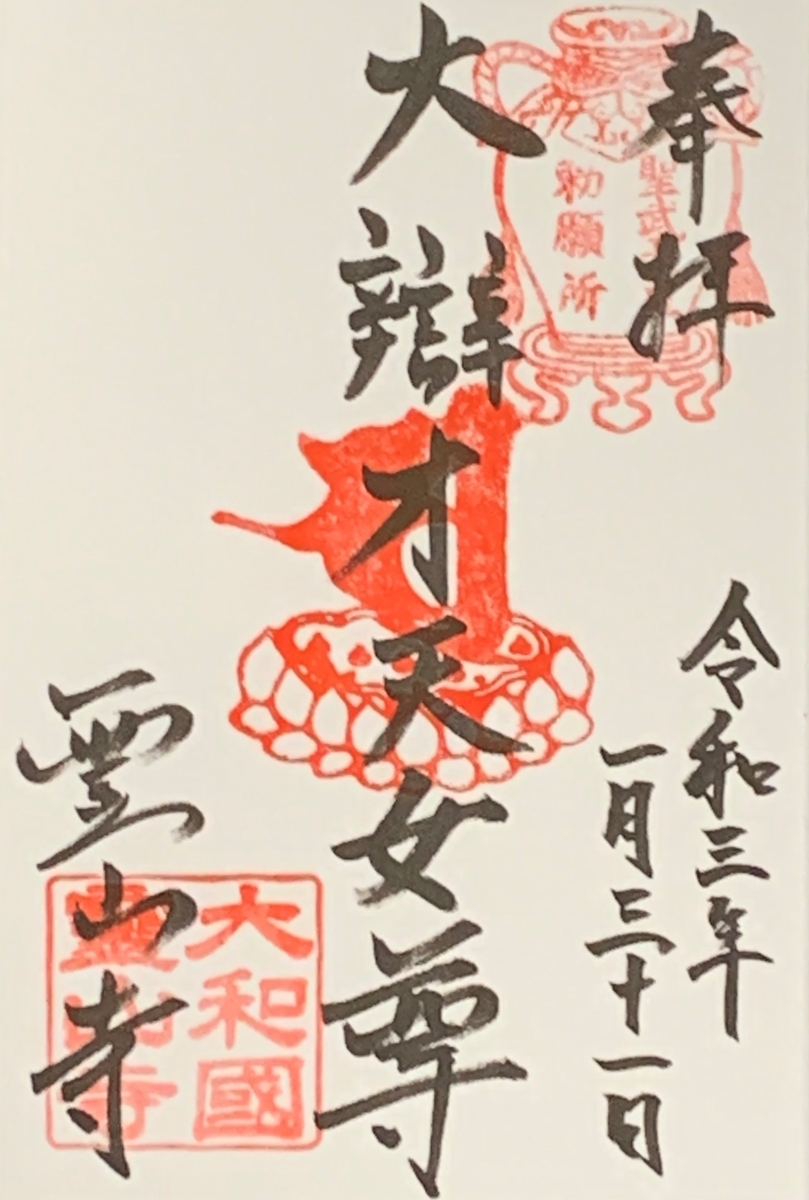 奉拝
聖武天皇
勅願所
令和三年
一月三十一日
大辯才天女尊
霊山寺
大和國
靈山寺